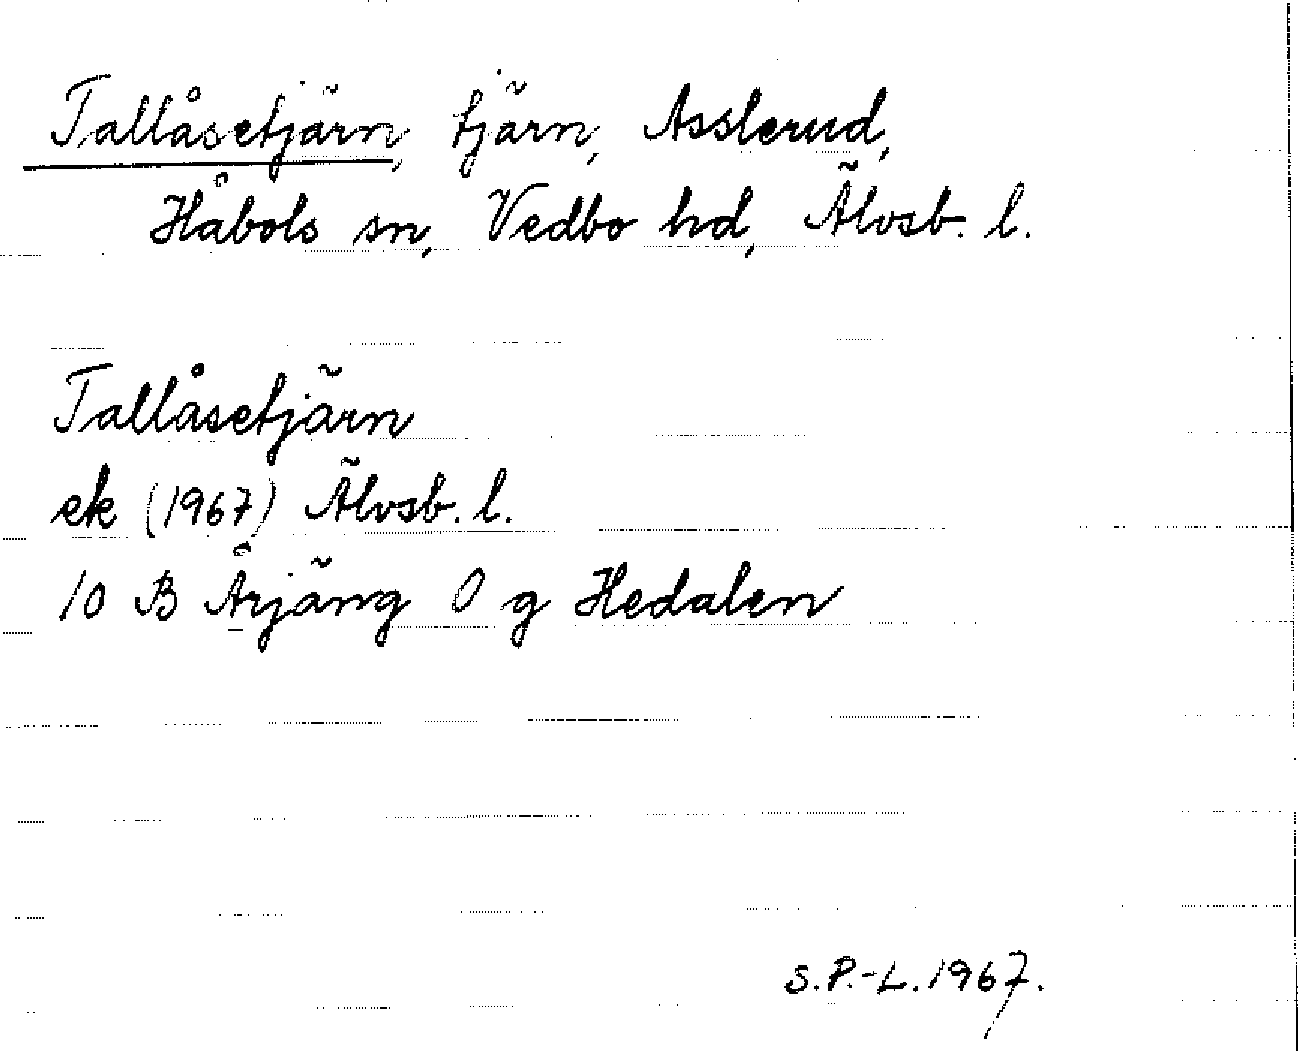 Tallåsetjärn, tjärn, Asslerud,
Håbols sn, Vedbo hd, Älvsb. l.
Tallåsetjärn
ek (1967) Älvsb. l.
10 B Årjäng 0 g Hedalen
S.P.-L. 1967.